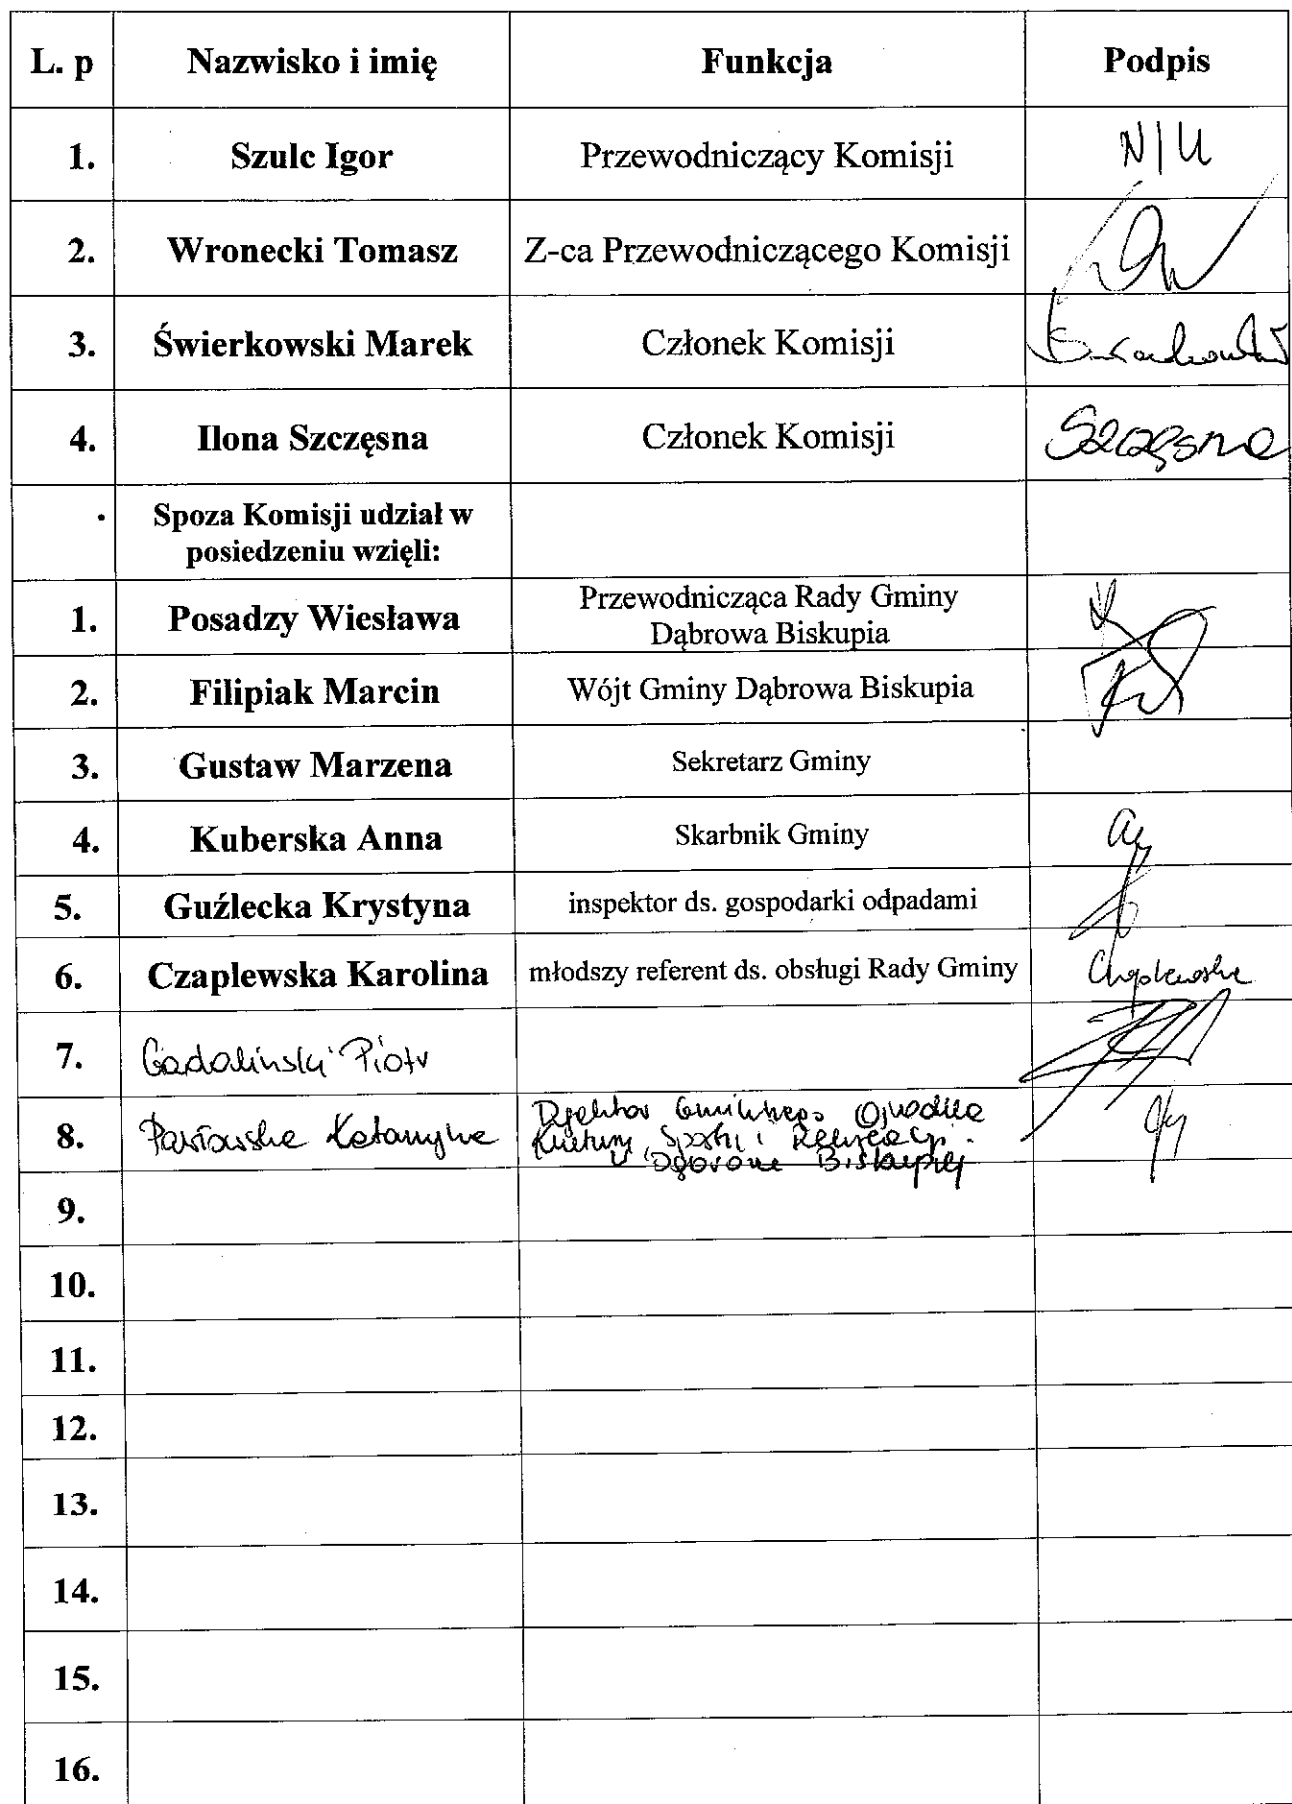 L. p Nazwisko i imię Funkcja Podpis
1. Szulc Igor Przewodniczący Komisji N|U
2. Wronecki Tomasz Z-ca Przewodniczącego Komisji
3. Świerkowski Marek Członek Komisji
4. Ilona Szczęsna Członek Komisji Szczęsna
Spoza Komisji udział w
posiedzeniu wzięli:
1. Posadzy Wiesława Przewodnicząca Rady Gminy
Dąbrowa Biskupia
2. Filipiak Marcin Wójt Gminy Dąbrowa Biskupia
3. Gustaw Marzena Sekretarz Gminy
4. Kuberska Anna Skarbnik Gminy
5. Guźlecka Krystyna inspektor ds. gospodarki odpadami
6. Czaplewska Karolina młodszy referent ds. obsługi Rady Gminy Czaplewska
7. Gadaliński Piotr
8. Pawłowska Katarzyna Dyrektor Gminnego Ośrodka
Kultury, Sportu i Rekreacji
Biskupiej
9.
10.
11.
12.
13.
14.
15.
16.